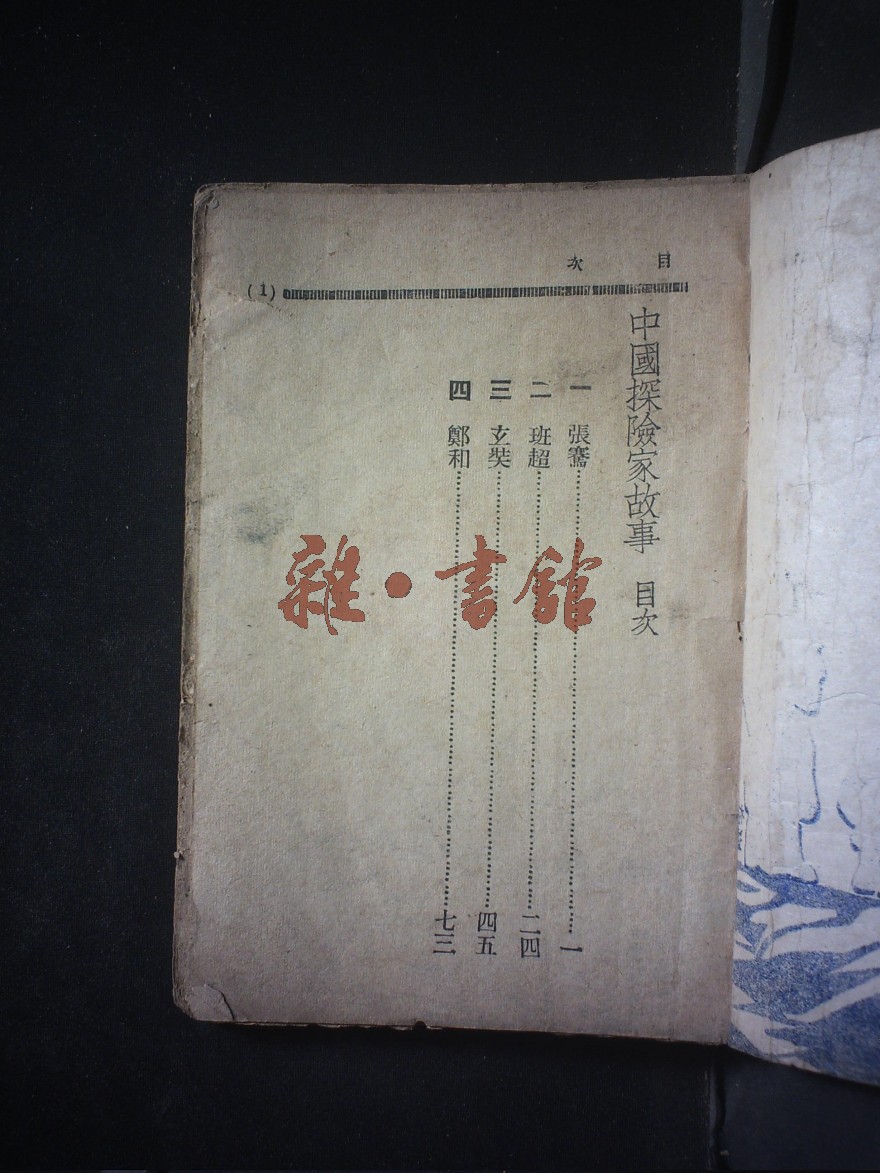 目次
(1)
中國探險家故事 目次
一 張騫 一
二 班超 二四
三 玄奘 四五
四 鄭和 七三
雜·書館